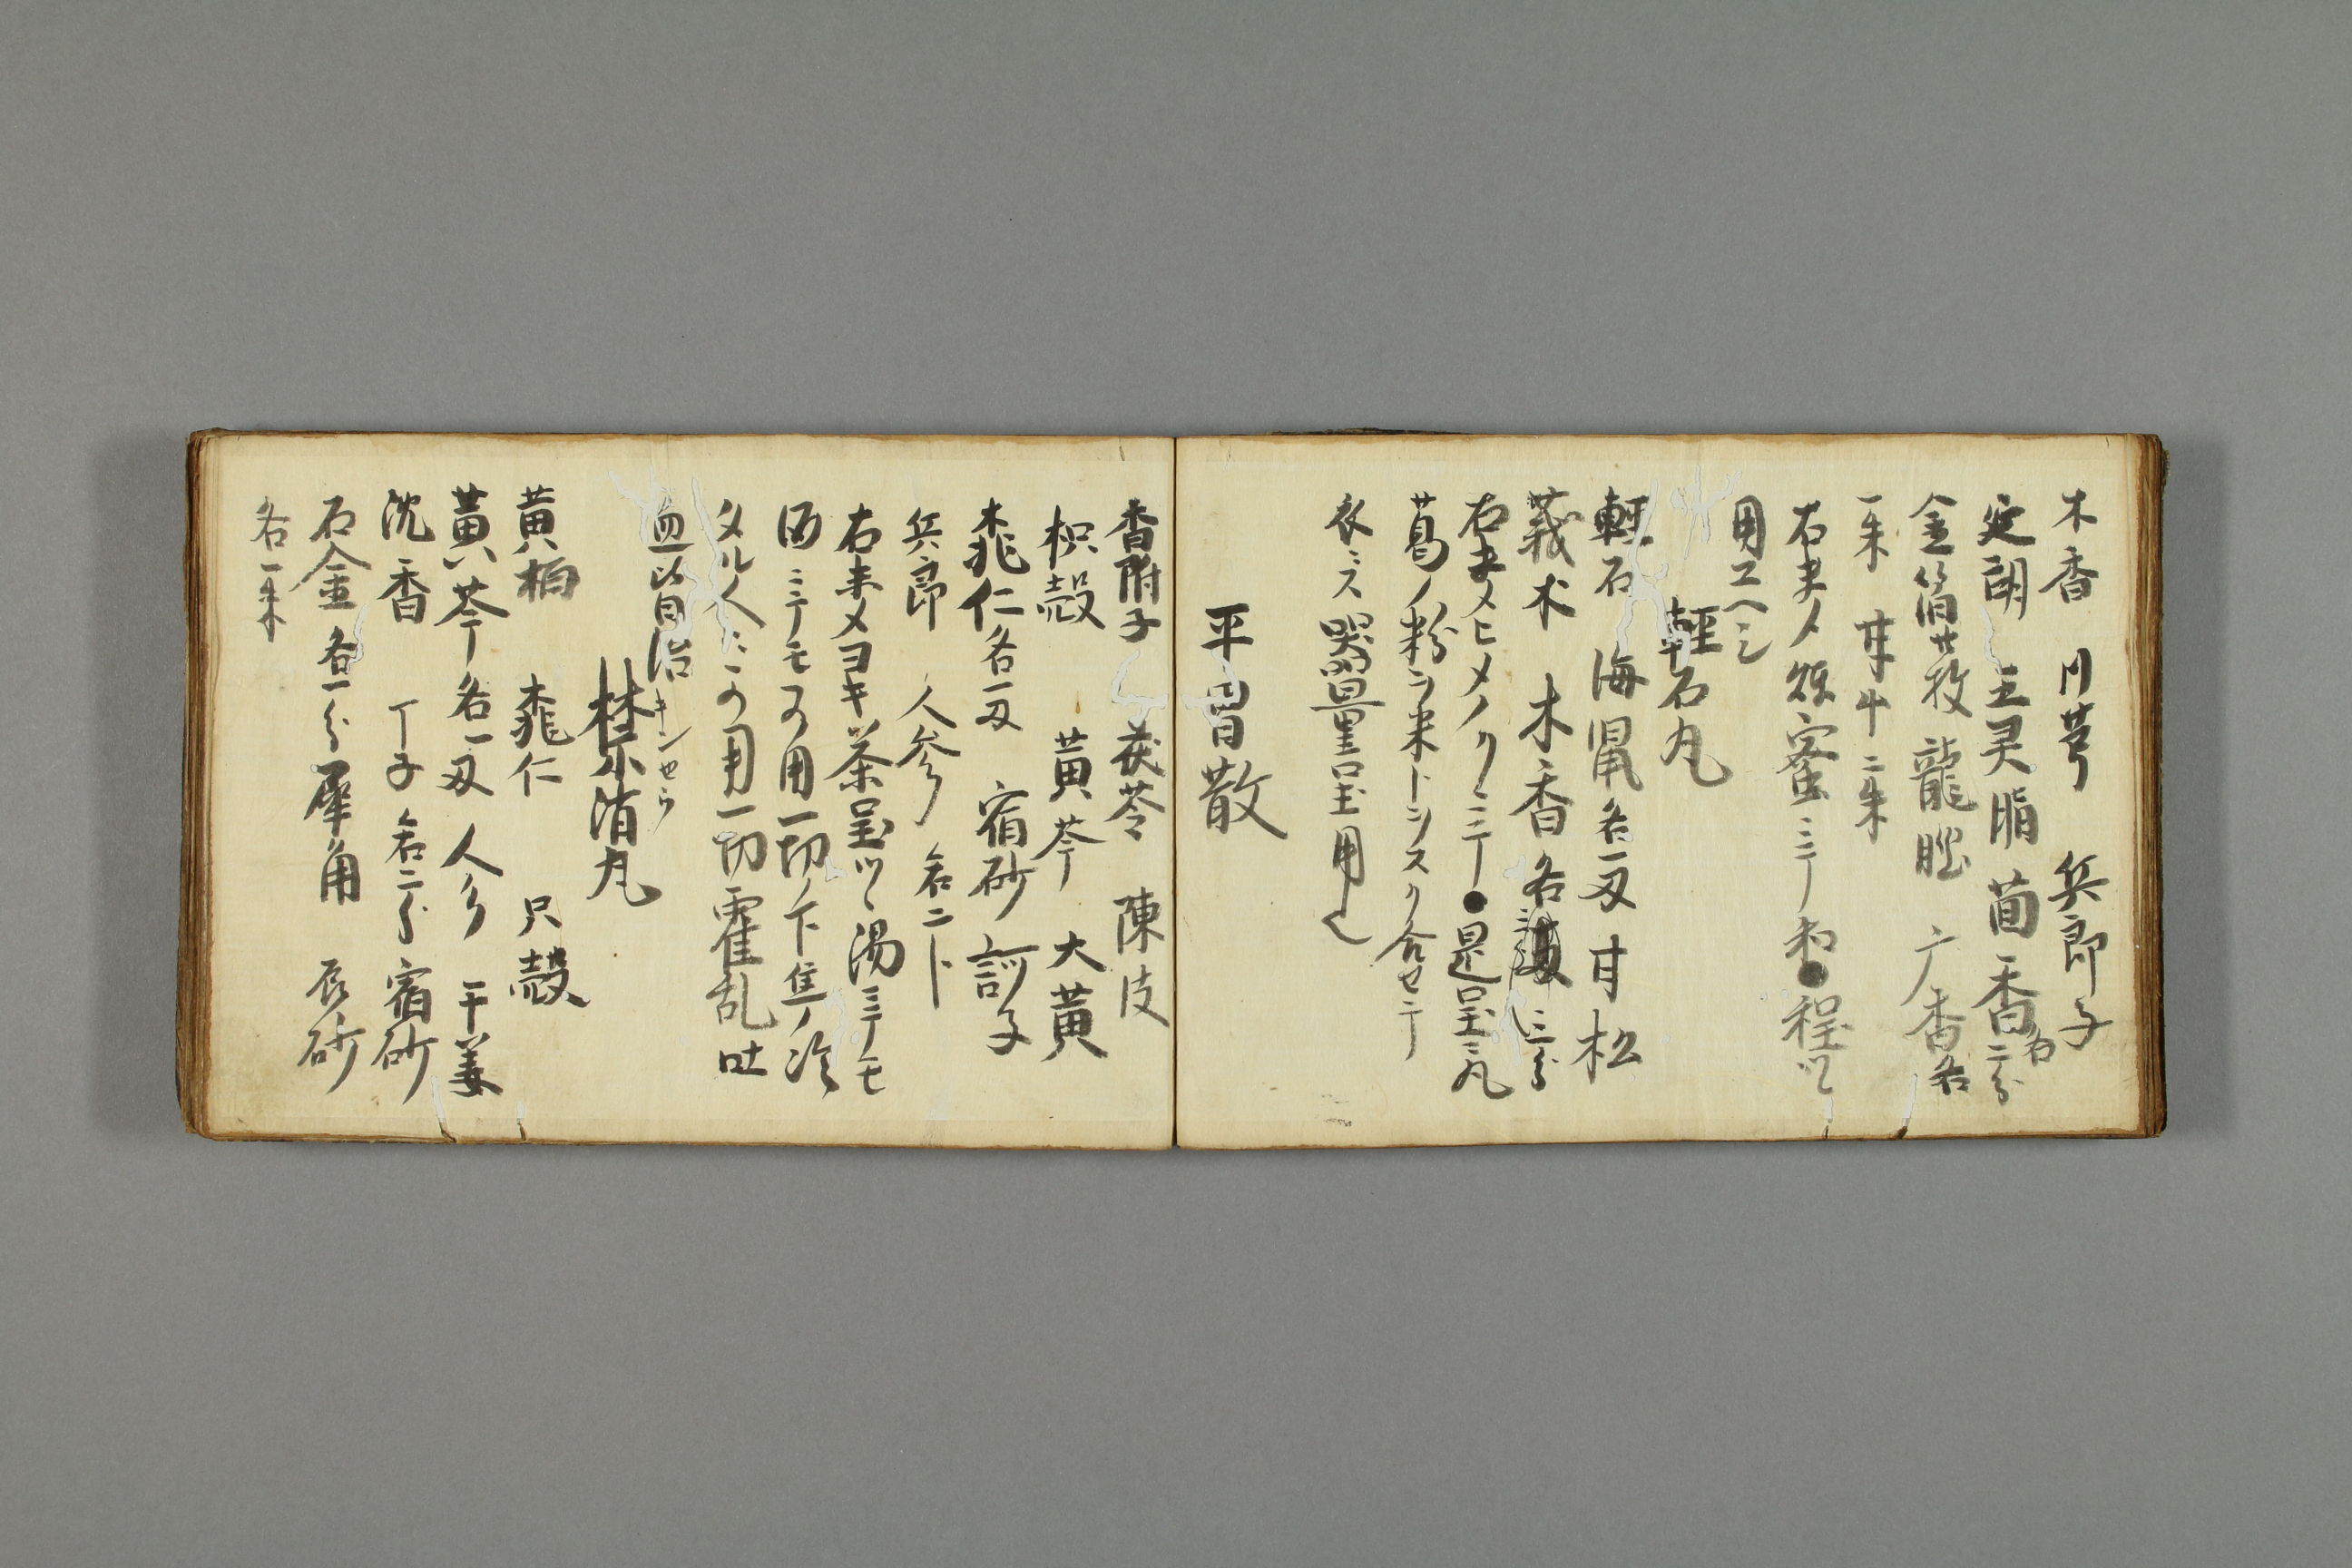 木香 川芎 兵郎子
延胡 五灵脂 茴香各二分
金箔廿枚 龍脳 广香各
一朱 牽牛二朱
右末メ煉蜜ニテ和 程ツヽ
用エヘシ
軽石丸
軽石 海鼠各一刄 甘松
莪朮 木香各三分
右末メヒメノクニテ 是呈ニ丸
葛ノ粉ヲ末トシスリ合セテ
衣ニス 器量呈用
平胃散
香附子 茯苓 陳皮
枳殻 黄芩 大黄
桃仁各一刄 宿砂 訶子
兵郎 人参 各二卜
右末メヨキ茶呈ツヽ湯ニテモ
酒ニテモ用一切ノ下焦ノ冷
タル人ニ用一切霍乱吐
血以自治
キンセウ
禁消丸
黄柏 桃仁 只殻
黄芩各一刄 人参 干姜
沈香 丁子各二分 宿砂
石金各一分 犀角 辰砂
各一朱